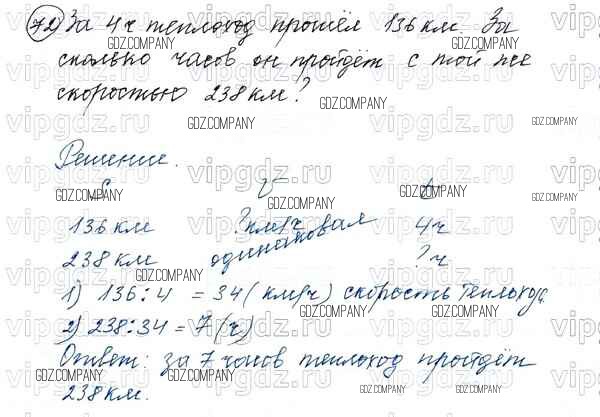 72) За 4 ч теплоход прошёл 136 км. За
сколько часов он пройдёт с той же
скоростью 238 км?
Решение.
S V t
136 км ? км/ч 4 ч
238 км одинаковая ? ч
1) 136 : 4 = 34 (км/ч) скорость теплохода.
2) 238 : 34 = 7 (ч)
Ответ: за 7 часов теплоход пройдёт
238 км.